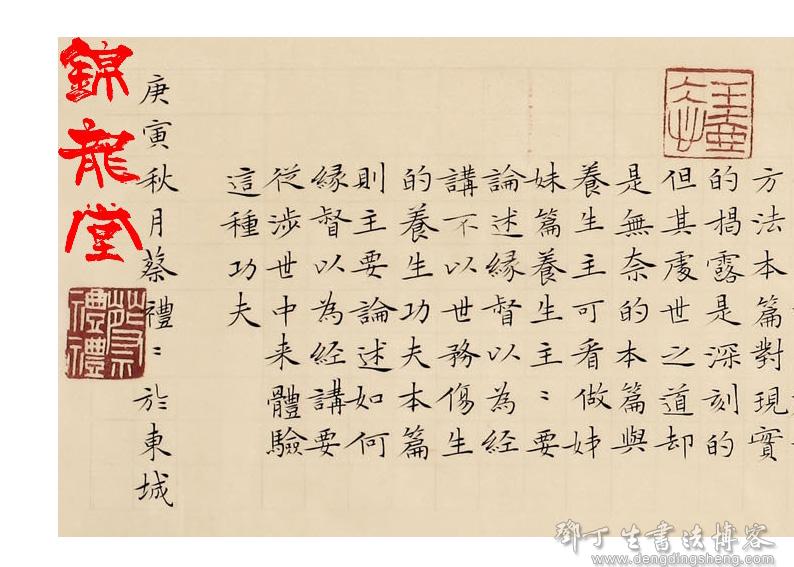 方法本篇對現實
的揭露是深刻的
但其處世之道却
是無奈的本篇與
養生主可看做姊
妹篇養生主〻要
論述緣督以為經
講不以世務傷生
的養生功夫本篇
則主要論述如何
緣督以為經講要
從涉世中来體驗
這種功夫
庚寅秋月蔡禮〻於東城
蔡禮禮
錦龍堂
鄧丁生書法博客
www.dengdingsheng.com